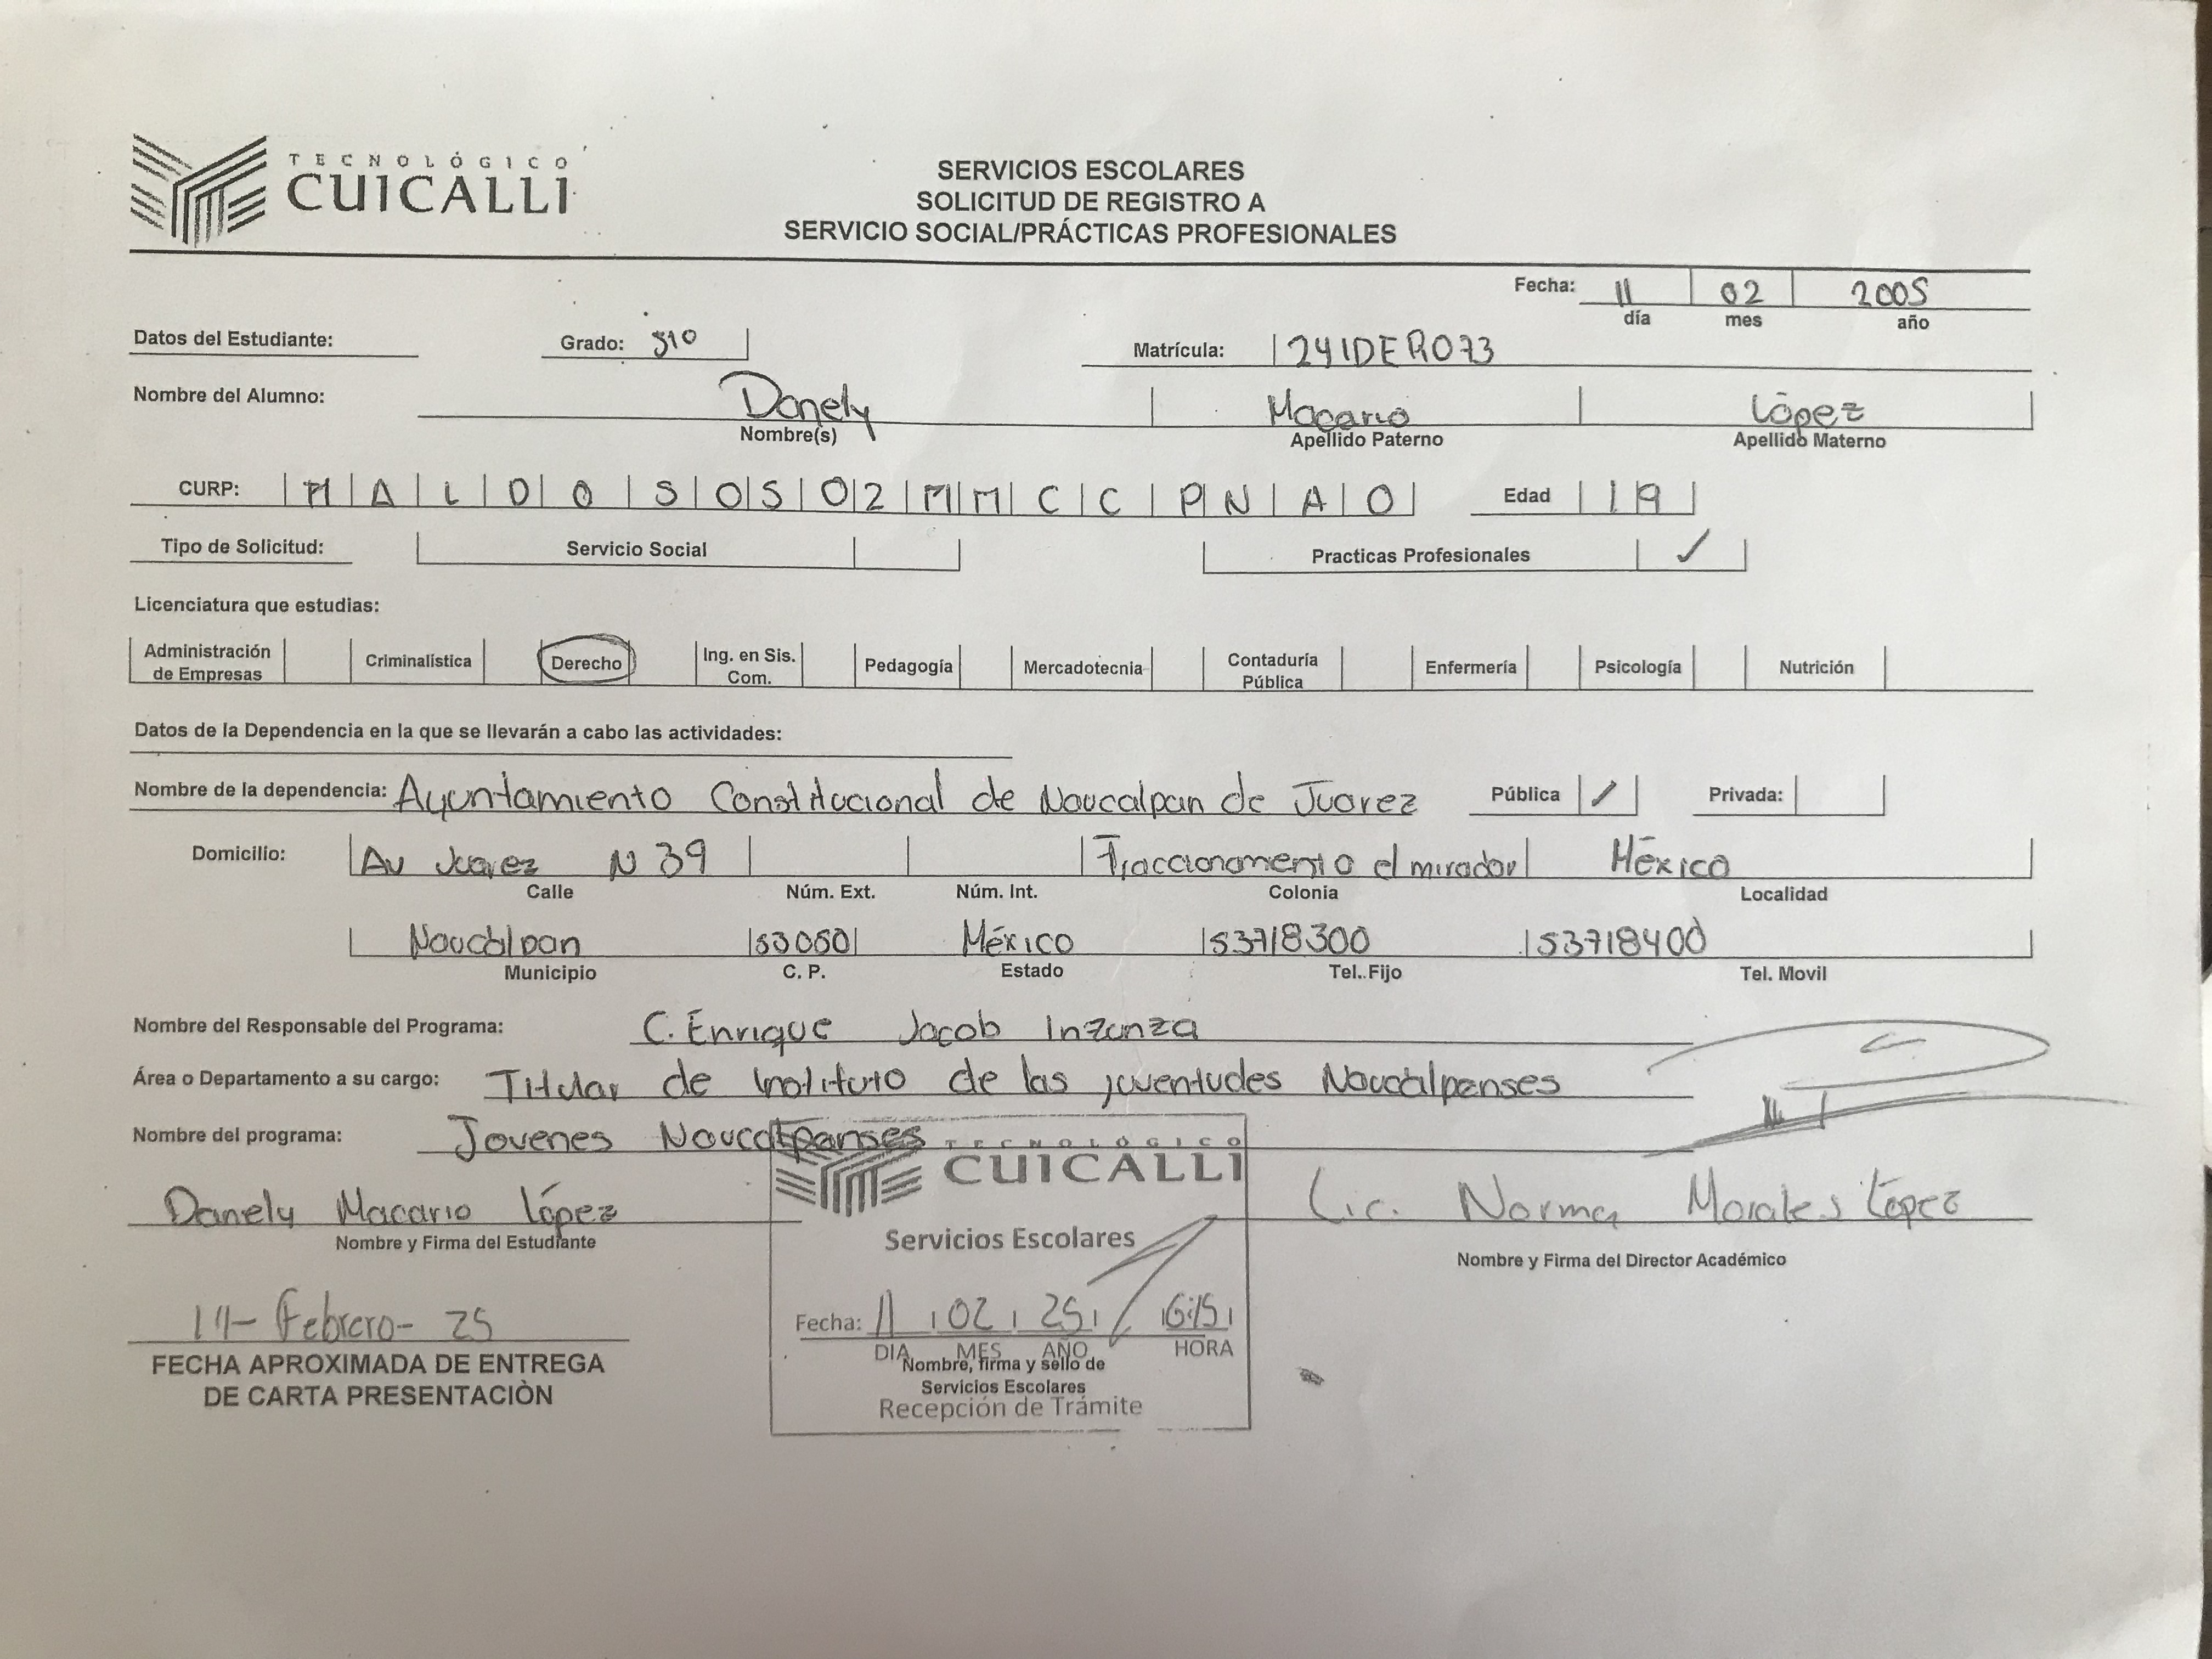 TECNOLÓGICO
CUICALLI
SERVICIOS ESCOLARES
SOLICITUD DE REGISTRO A
SERVICIO SOCIAL/PRÁCTICAS PROFESIONALES
Fecha: 11 02 2005
día mes año
Datos del Estudiante: Grado: Matrícula: 241DER073
Nombre del Alumno: Danely Macario López
Nombre(s) Apellido Paterno Apellido Materno
CURP: M A L D 0 5 0 5 0 2 M M C C P N A 0 Edad 19
Tipo de Solicitud: Servicio Social Practicas Profesionales ✓
Licenciatura que estudias:
Administración de Empresas Criminalística Derecho Ing. en Sis. Com. Pedagogía Mercadotecnia Contaduría Pública Enfermería Psicología Nutrición
Datos de la Dependencia en la que se llevarán a cabo las actividades:
Nombre de la dependencia: Ayuntamiento Constitucional de Naucalpan de Juarez Pública ✓ Privada:
Domicilio: Av Juarez N 39 Fraccionamento el mirador México
Calle Núm. Ext. Núm. Int. Colonia Localidad
Naucálpan 53050 México 53718300 53718400
Municipio C. P. Estado Tel. Fijo Tel. Movil
Nombre del Responsable del Programa: C. Enrique Jacob Inzunza
Área o Departamento a su cargo: Titular de Instituto de las juventudes Naucálpenses
Nombre del programa: Jovenes Naucalpanses
TECNOLÓGICO
CUICALLI
Danely Macario López Lic. Norma Morales López
Nombre y Firma del Estudiante Servicios Escolares Nombre y Firma del Director Académico
14- Febrero- 25 Fecha: 11 02 25 16:15
DIA MES AÑO HORA
FECHA APROXIMADA DE ENTREGA Nombre, firma y sello de
DE CARTA PRESENTACIÒN Servicios Escolares
Recepción de Trámite